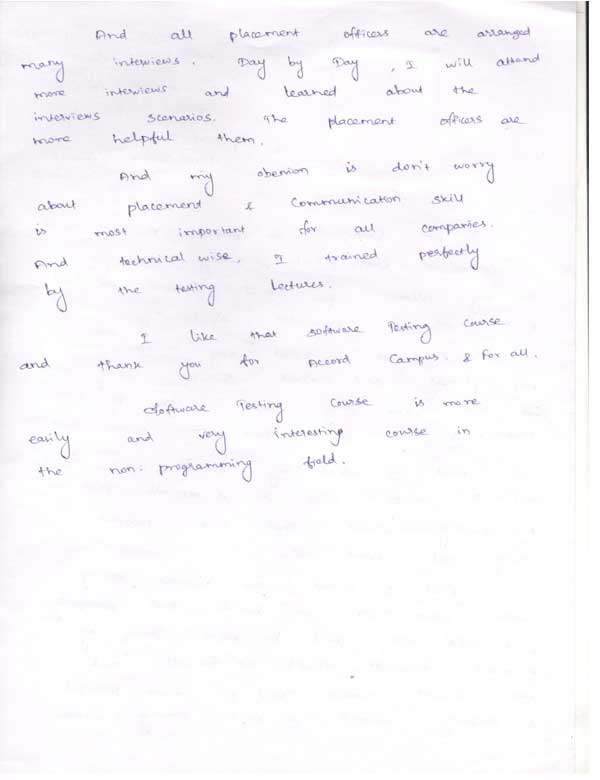 And all placement officers are arranged
many interviews. Day by Day, I will attend
more interviews and learned about the
interviews scenarios. The placement officers are
more helpful them.
And my obenion is don't worry
about placement & Communication skill
is most important for all companies.
And technical wise, I trained perfectly
by the testing Lectures.
I like that software Testing Course
and thank you for Accord Campus. & for all.
Software Testing Course is more
easily and very interesting course in
the non-programming field.